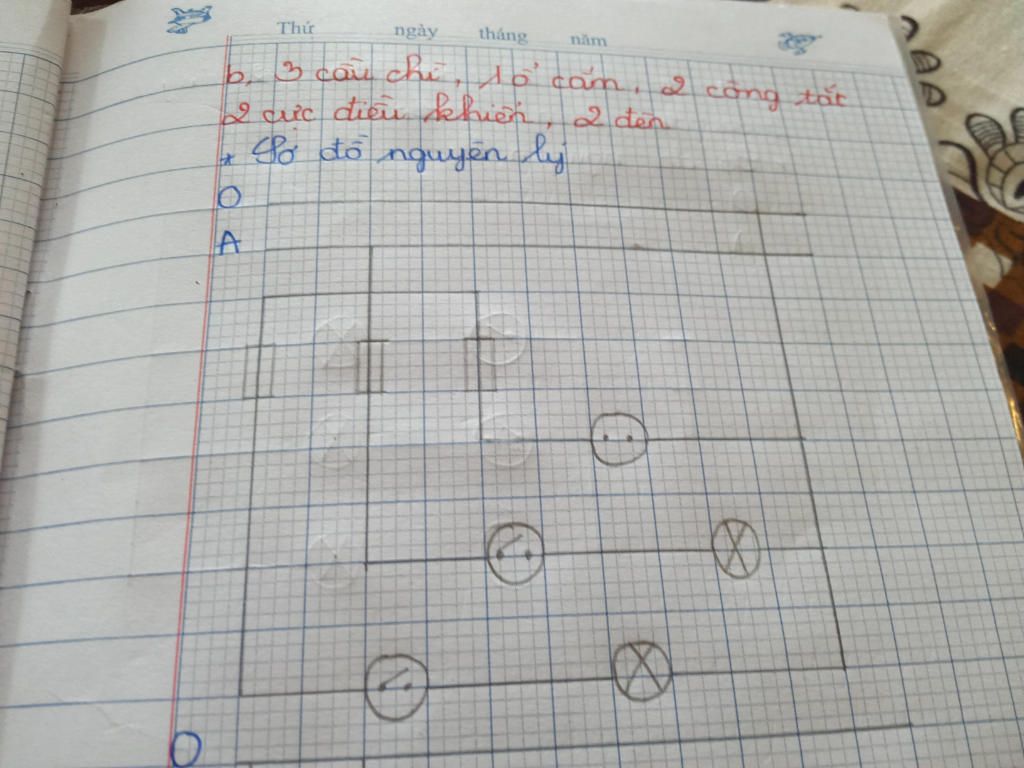 Thứ ngày tháng năm
b, 3 cầu chì, 1 ổ cắm, 2 công tắc
2 cực điều khiển, 2 đèn
* Sơ đồ nguyên lý
O
A
O